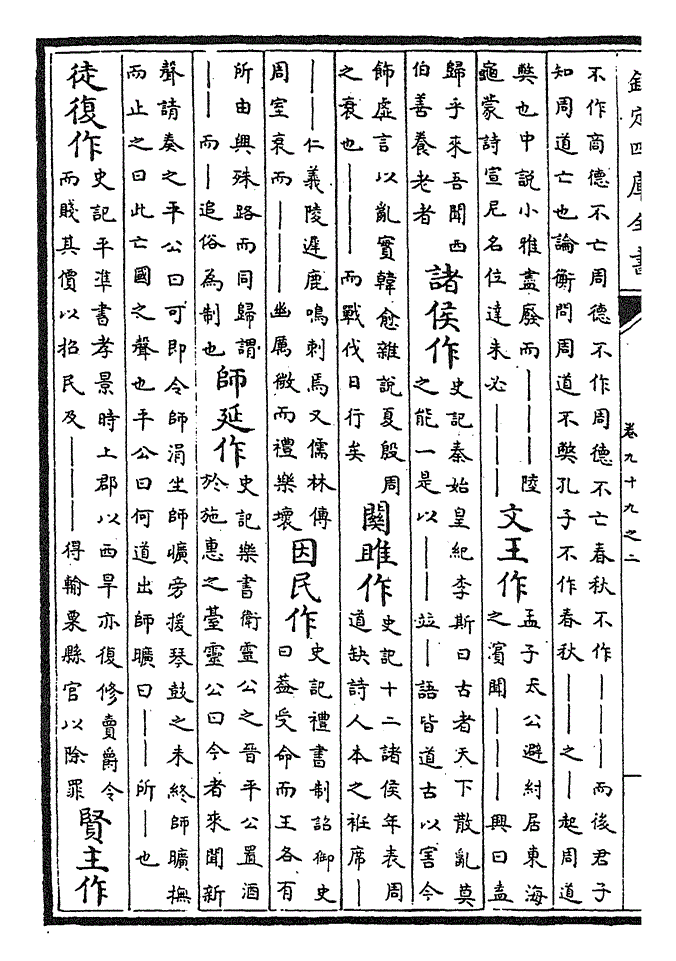 欽定四庫全書
卷九十九之二
不作商德不亡周德不作周德不亡春秋不作———而後君子
知周道亡也論衡問周道不獘孔子不作春秋——之—起周道
獘也中說小雅盡廢而————陸
龜蒙詩宣尼名位達未必————
文王作
孟子太公避紂居東海
之濱聞———興曰盍
歸乎來吾聞西
伯善養老者
諸侯作
史記秦始皇紀李斯曰古者天下散亂莫
之能一是以——竝—語皆道古以害今
飾虛言以亂實韓愈雜說夏殷周
之衰也———而戰伐日行矣
關雎作
史記十二諸侯年表周
道缺詩人本之袵席—
——仁義陵遲鹿鳴刺焉又儒林傳
周室衰而———幽厲微而禮樂壞
因民作
史記禮書制詔御史
曰葢受命而王各有
所由興殊路而同歸謂
——而—追俗為制也
師延作
史記樂書衛靈公之晉平公置酒
於施惠之臺靈公曰今者來聞新
聲請奏之平公曰可即令師涓坐師曠旁援琴鼓之未終師曠撫
而止之曰此亡國之聲也平公曰何道出師曠曰——所—也
徒復作
史記平準書孝景時上郡以西旱亦復修賣爵令
而賤其價以招民及———得輸粟縣官以除罪
賢主作